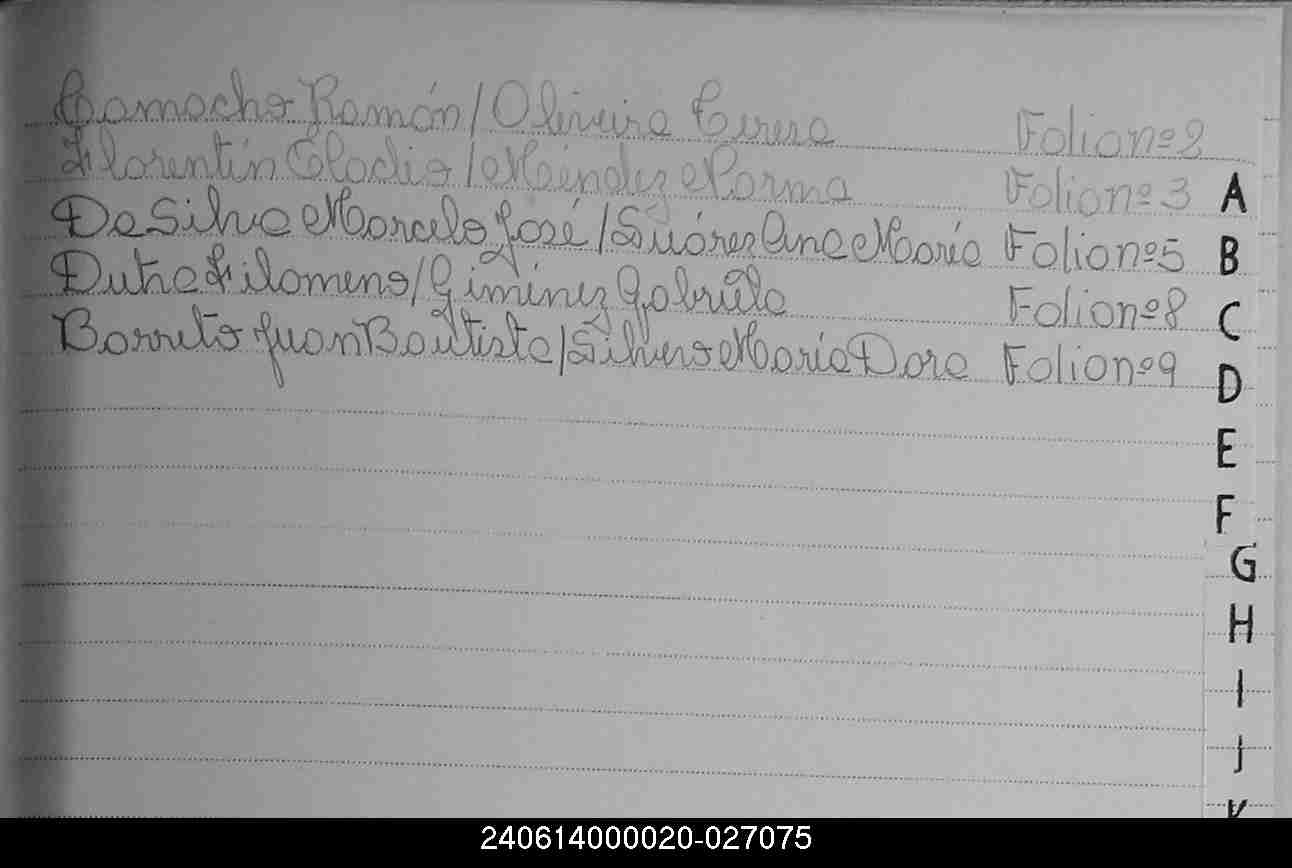 Camacho Ramón/Oliveira Teresa Folio nº 2
Florentín Eladio/Méndez Norma Folio nº 3
Da Silva Marcelo José/Suárez Ana María Folio nº 5
Dutra Filomeno/Giménez Gabriela Folio nº 8
Barreto Juan Bautista/Silvero María Dora Folio nº 9
A
B
C
D
E
F
G
H
I
J
K
240614000020-027075